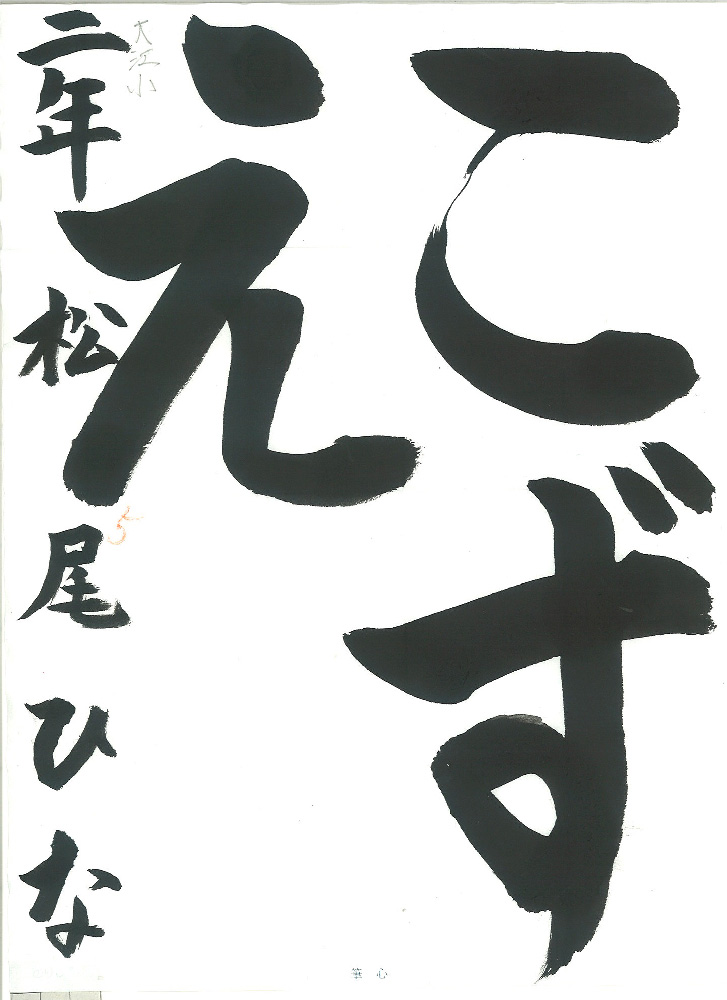 こず
え
二年 松尾ひな
大江小
5
筆心